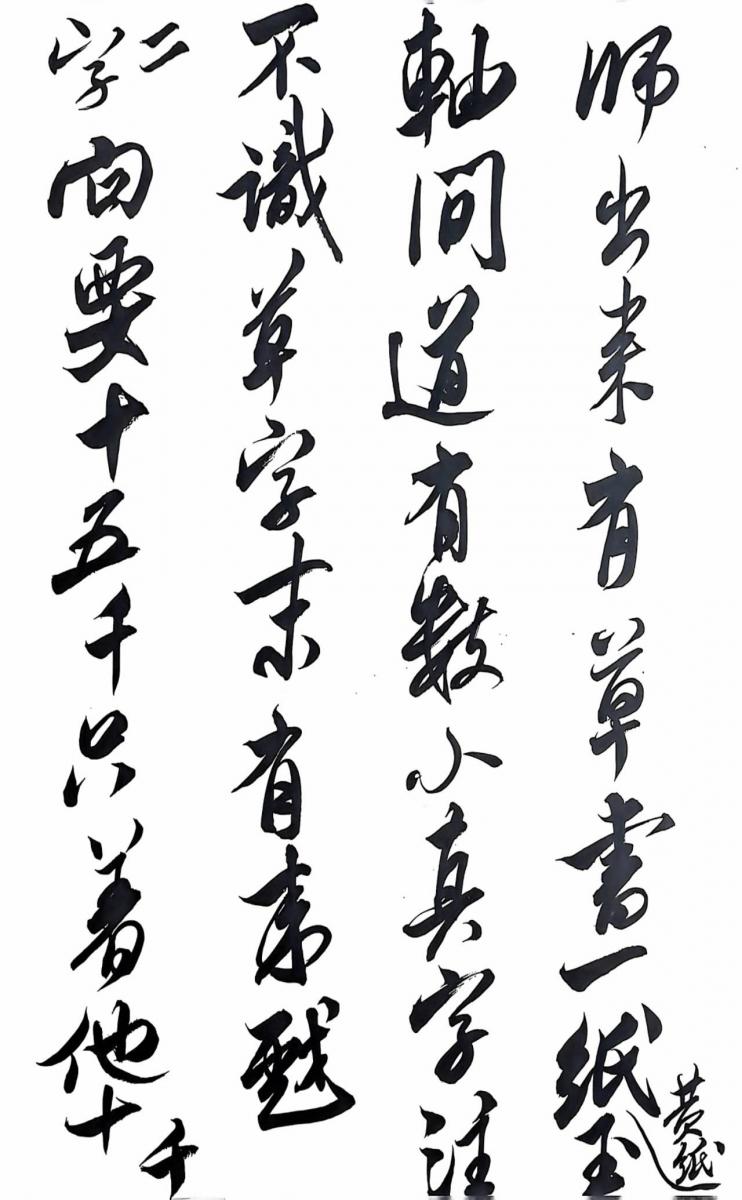 師出来有草書一紙黄紙玉
軸間道有數小真字注
不識草字末有来戩
二字向要十五千只著他十千